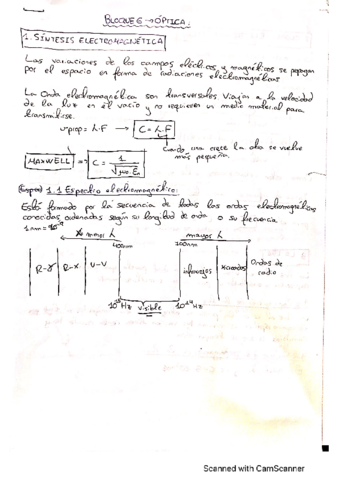 BLOQUE 6 → ÓPTICA.
1. SÍNTESIS ELECTROMAGNÉTICA
Las variaciones de los campos eléctricos y magnéticos se propagan
por el espacio en forma de radiaciones electromagnéticas
La Onda electromagnética son transversales viajan a la velocidad
de la luz en el vacío y no requieren un medio material para
transmitirse.
v prop = λ·F → C = λ·F
Cuando una crece la otra se vuelve
más pequeña.
MAXWELL ⇒ C = 1/√μ₀·ε₀
1.1 Espectro electromagnético:
Está formado por la secuencia de todas las ondas electromagnéticas
conocidas ordenadas según su longitud de onda o su frecuencia.
1nm =
menos λ mayor λ
400nm 700nm
R-γ R-X U-V infrarrojos Microondas Ondas de
radio
10¹⁵Hz visible 10¹⁴Hz
Scanned with CamScanner